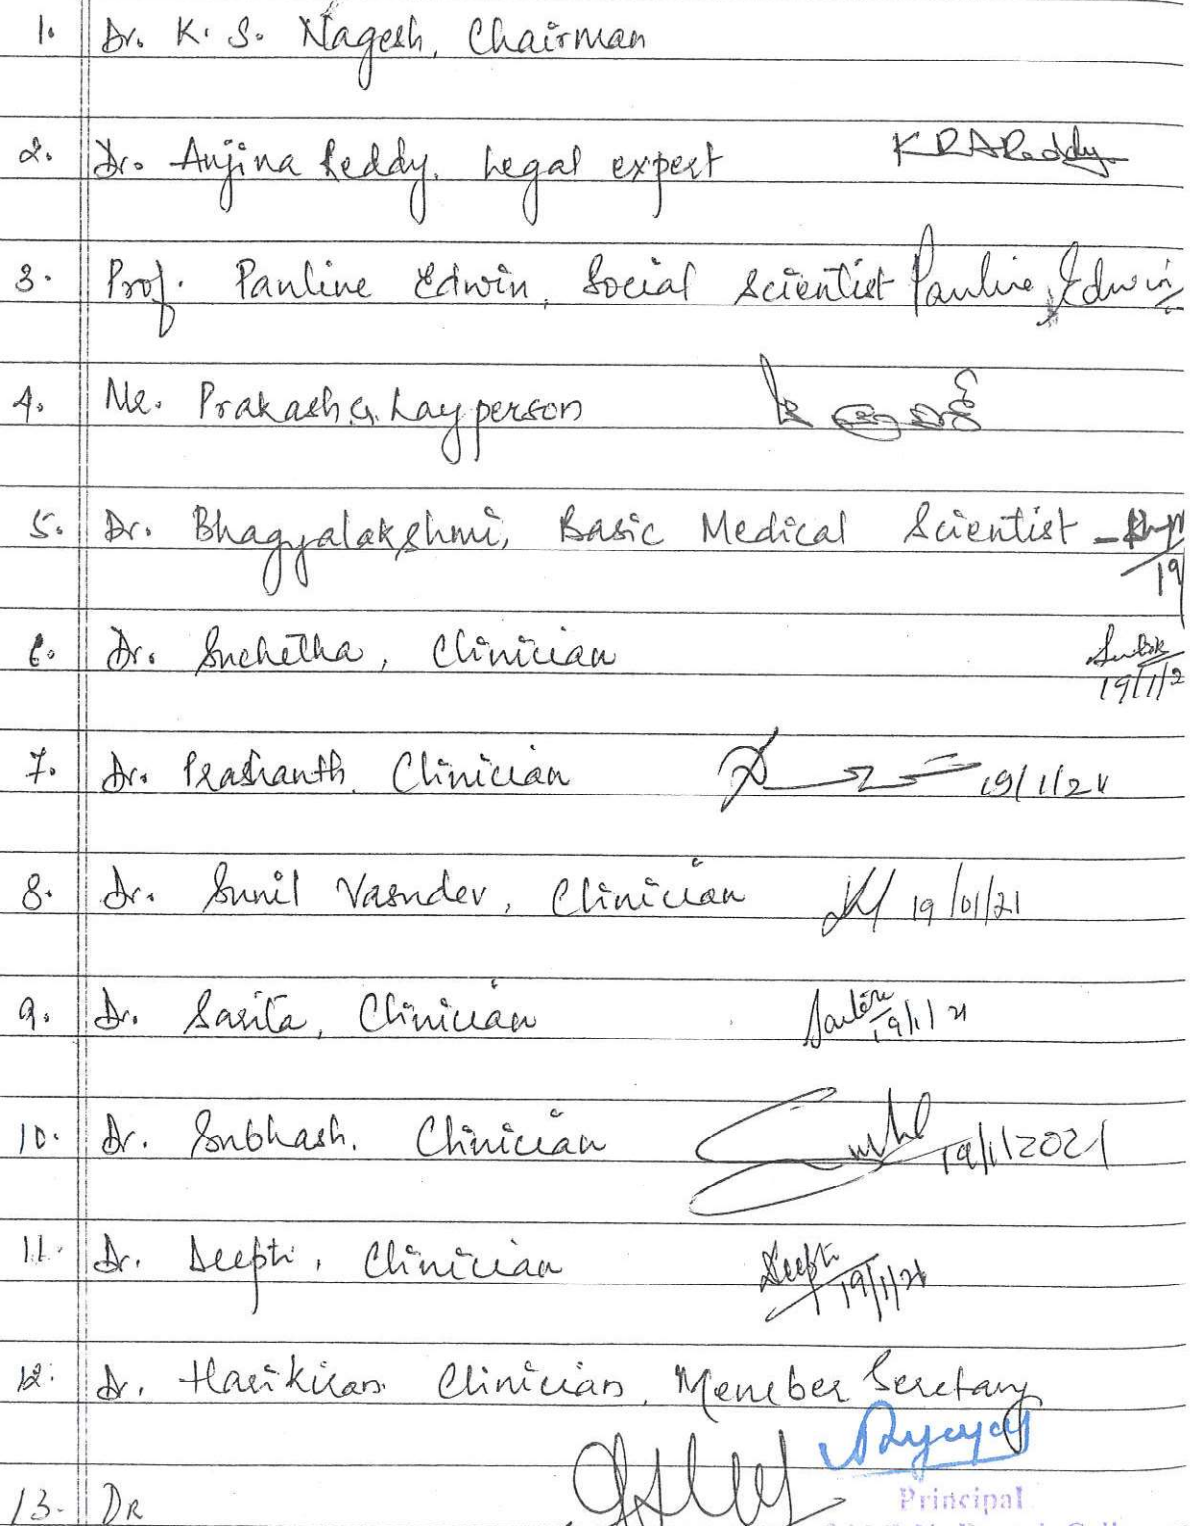 1. Dr. K. S. Nagesh, Chairman
2. Dr. Anjina Reddy, Legal expert KRAReddy
3. Prof. Pauline Edwin, Social Scientist Pauline Edwin
4. Mr. Prakash G. Layperson
5. Dr. Bhagyalakshmi, Basic Medical Scientist -
19
6. Dr. Suchetha, Clinician
19/1/2
7. Dr. Prashanth, Clinician 19/1/21
8. Dr. Sunil Vasudev, Clinician 19/01/21
9. Dr. Sarita, Clinician 19/1/21
10. Dr. Subhash, Clinician 19/1/2021
11. Dr. Deepti, Clinician Deepti 19/1/21
12. Dr. Harikiran Clinician, Member Secretary
Principal
13. Dr